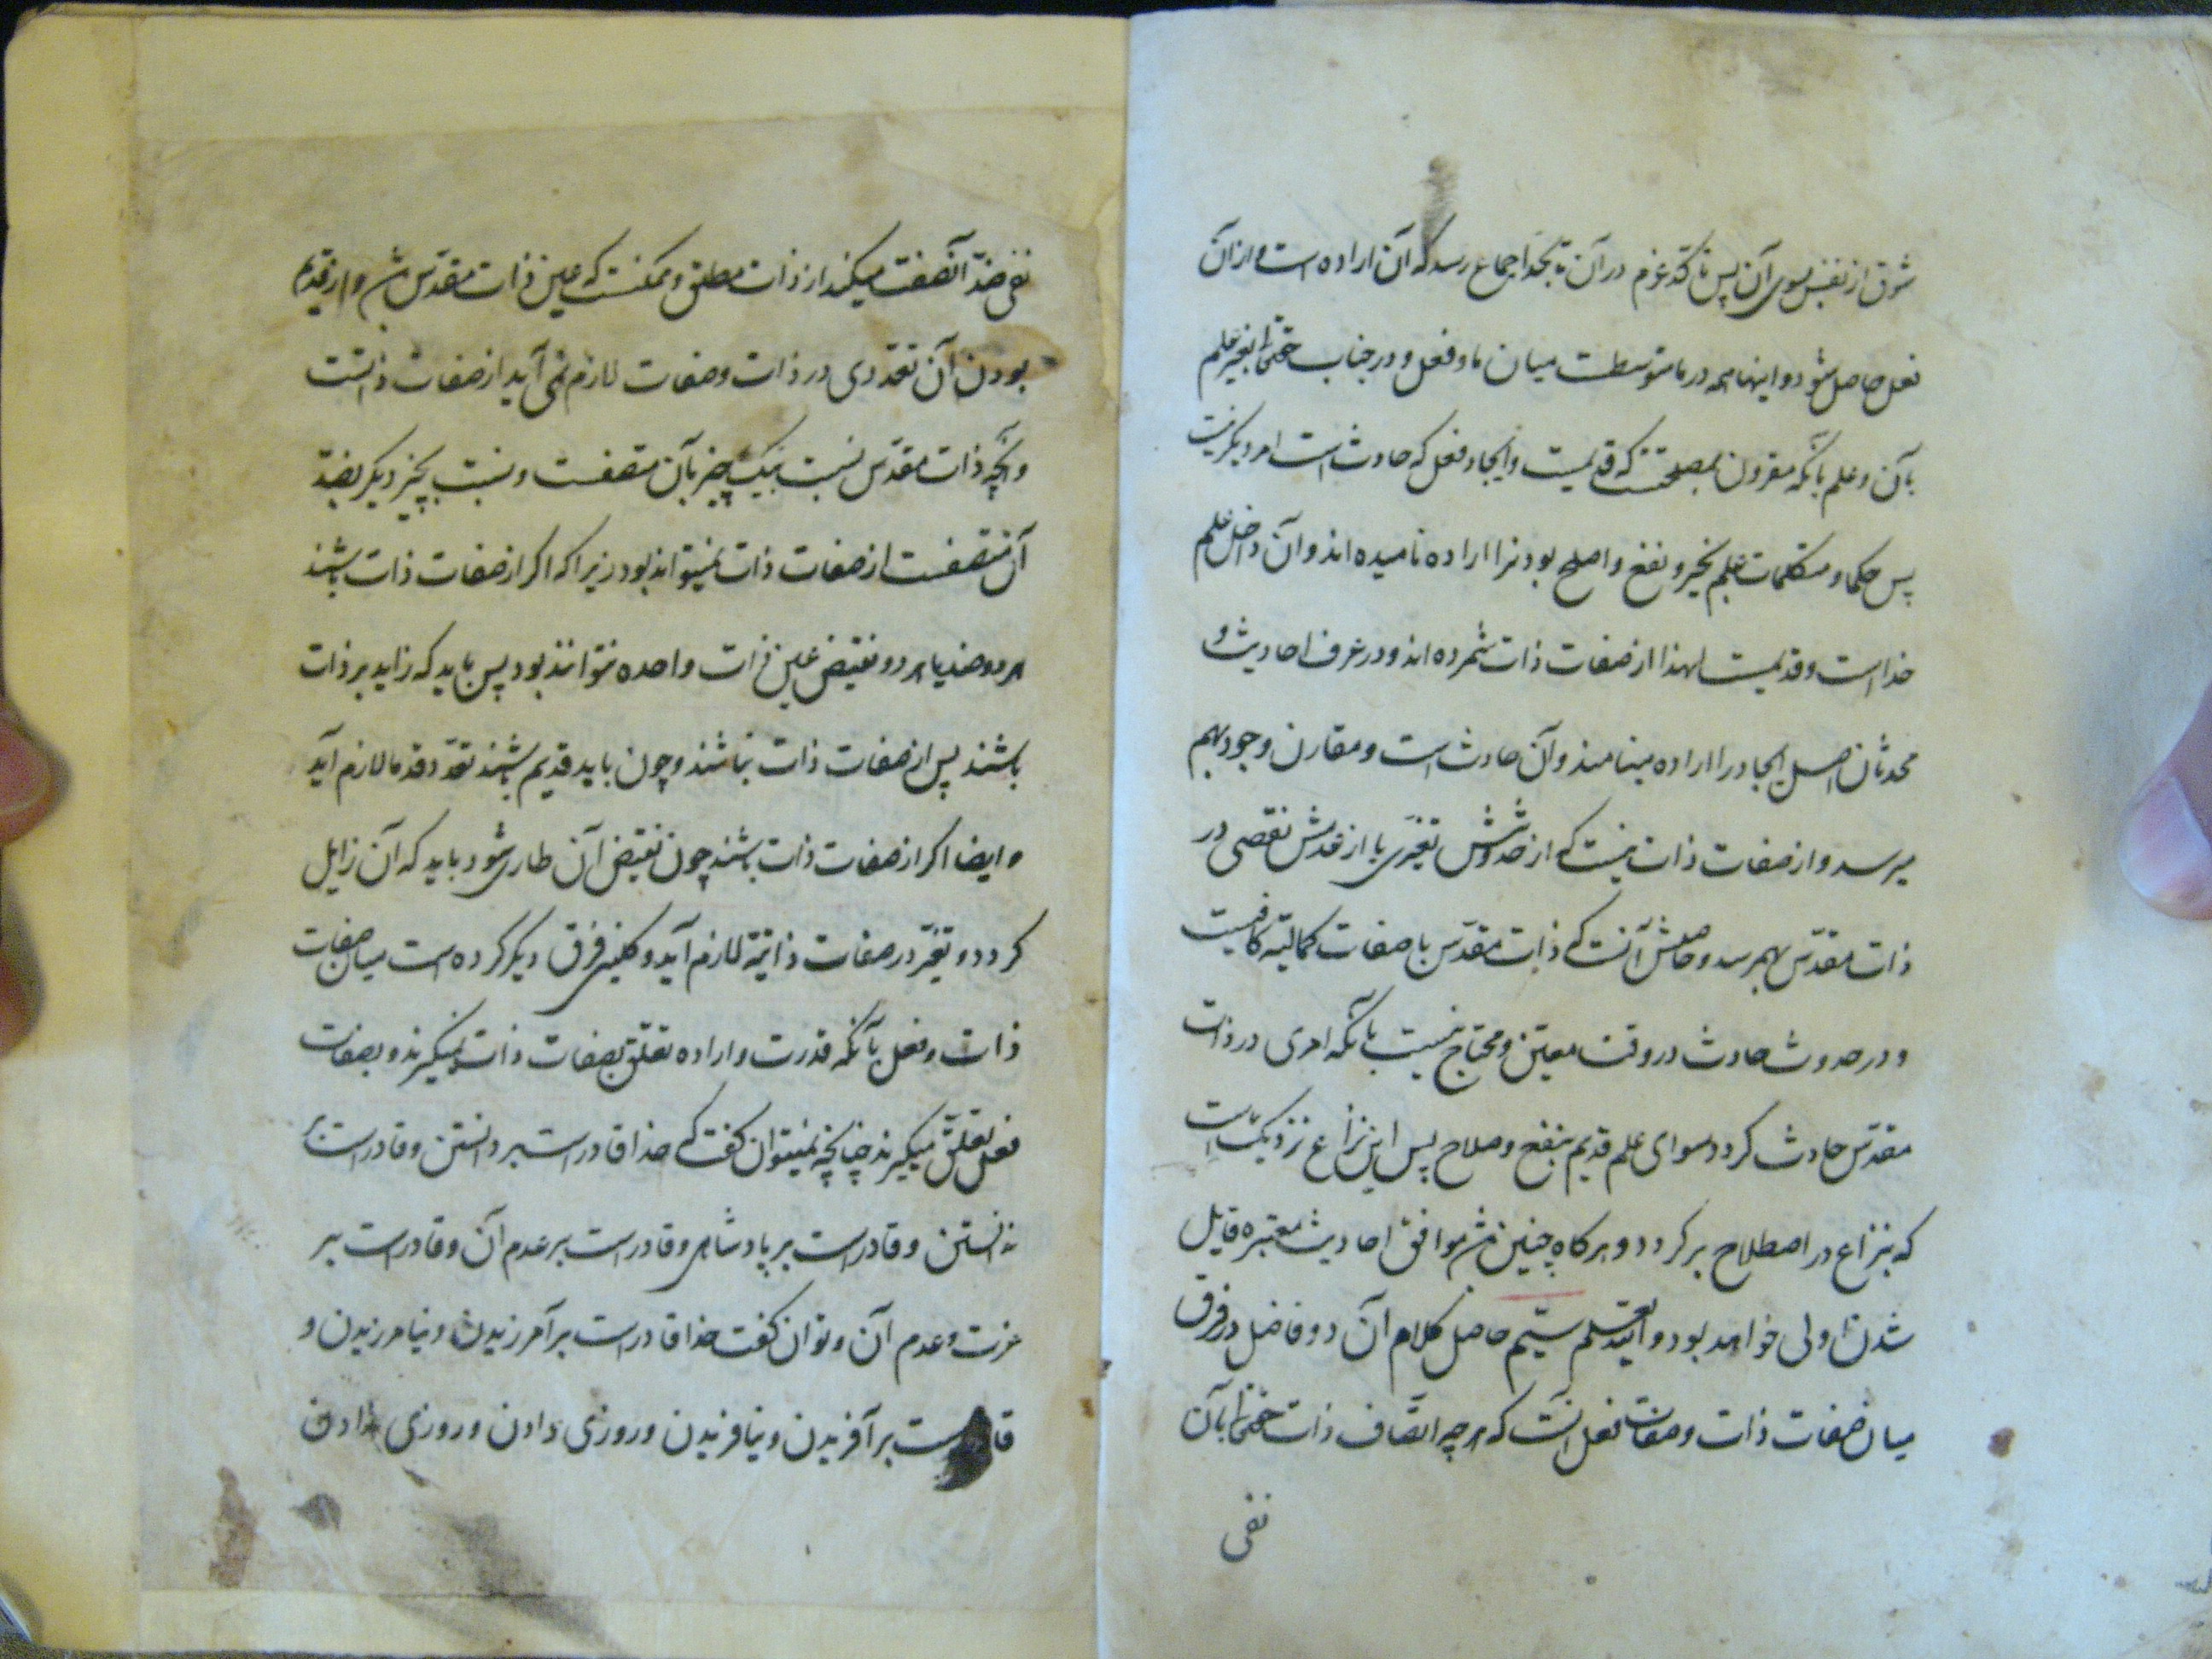 شوق از نفس بسوی آن پس تاکد عزم در آن تا بحد اجماع رسد که آن اراده است و از آن
فعل حاصل شود و اینها همه در ما متوسطست میان ما و فعل و در جناب حقتعالی بغیر علم
بآن و علم بآنکه مقرون بمصلحتست که قدیمست و ایجاد فعل که حادث است امر دیگر نیست
پس حکما و متکلمات علم بخیر و نفع و اصلح بودنرا اراده نامیده اند و آن داخل علم
خداست و قدیمست لهذا از صفات ذات شمرده اند و در عرف احادیث و
محدثان اصل ایجاد را اراده مینامند و آن حادث است و مقارن وجود بهم
میرسد و از صفات ذات نیست که از حدوثش تغیری یا از قدمش نقصی در
ذات مقدس بهم رسد و حاصلش آنست که ذات مقدس با صفات کمالیه کافیست
و در حدوث حادث در وقت معین و محتاج نیست بآنکه امری در ذات
مقدس حادث کردد سوای علم قدیم بنفع و صلاح پس این نزاع نزدیکست
که بنزاع در اصطلاح برکردد و هرکاه چنین باشد موافق احادیث معتبره قایل
شدن اولی خواهد بود و الله تعالی یعلم ششم حاصل کلام آن دو فاضل در فرق
میان صفات ذات و صفات فعل آنست که هر چه اتصاف ذات حقتعالی بآن
نفی
نفی ضد آنصفت میکند از ذات مطلق و ممکنست که عین ذات مقدس باشد و از قدیم
بودن آن تعددی در ذات و صفات لازم نمی آید از صفات ذاتست
و آنچه ذات مقدس نسبت بیک چیز بآن متصفست و نسبت بچیز دیکر بضد
آن متصفست از صفات ذات نمیتواند بود زیرا که اکر از صفات ذات باشند
هر دو ضد یا هر دو نقیض عین ذات واحده نتوانند بود پس باید که زاید بر ذات
باشند پس از صفات ذات نباشند و چون باید قدیم باشند تعدد قدما لازم آید
و ایضا اکر از صفات ذات باشند چون نقیض آن طاری شود باید که آن زایل
کردد و تغیر در صفات ذاتیه لازم آید و کلینی فرق دیکر کرده است میان صفات
ذات و فعل بآنکه قدرت و اراده تعلق بصفات ذات نمیکیرند و بصفات
فعل تعلق میکیرند چنانچه نمیتوان کفت که خدا قادرست بر دانستن و قادرست بر
ندانستن و قادرست بر پادشاهی و قادرست بر عدم آن و قادرست بر
عزت و عدم آن و توان کفت خدا قادرست بر آمرزیدن و نیامرزیدن و
قادرست بر آفریدن و نیافریدن و روزی دادن و روزی ندادن